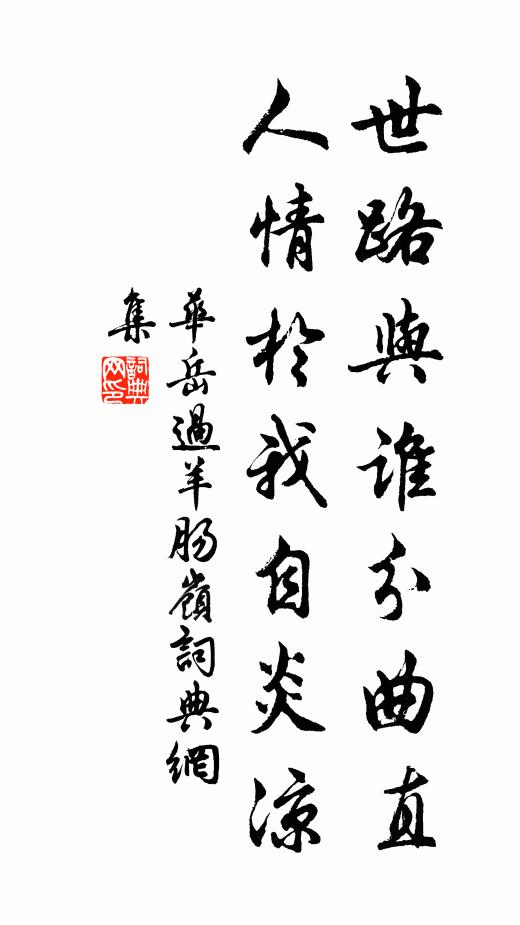 世路與誰分曲直
人情於我自炎涼
華岳過羊腸嶺詞典網
集
詞典
网印